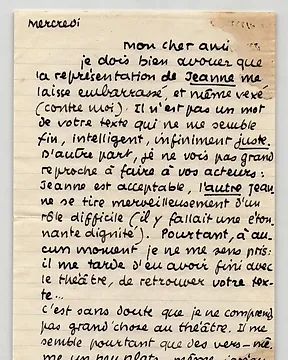 mercredi
mon cher ami
je dois bien avouer que
la représentation de Jeanne me
laisse embarrassé, et même vexé
(contre moi). Il n'est pas un mot
de votre texte qui ne me semble
fin, intelligent, infiniment juste.
D'autre part, je ne vois pas grand
reproche à faire à vos acteurs :
Jeanne est acceptable, l'autre Jean
ne se tire merveilleusement d'un
rôle difficile (il y fallait une éton
nante dignité). Pourtant, à au-
cun moment je ne me sens pris :
il me tarde d'en avoir fini avec
le théâtre, de retrouver votre tex-
te...
C'est sans doute que je ne comprend
pas grand'chose au théâtre. Il me
semble pourtant que des vers - mê
me un peu plats, même